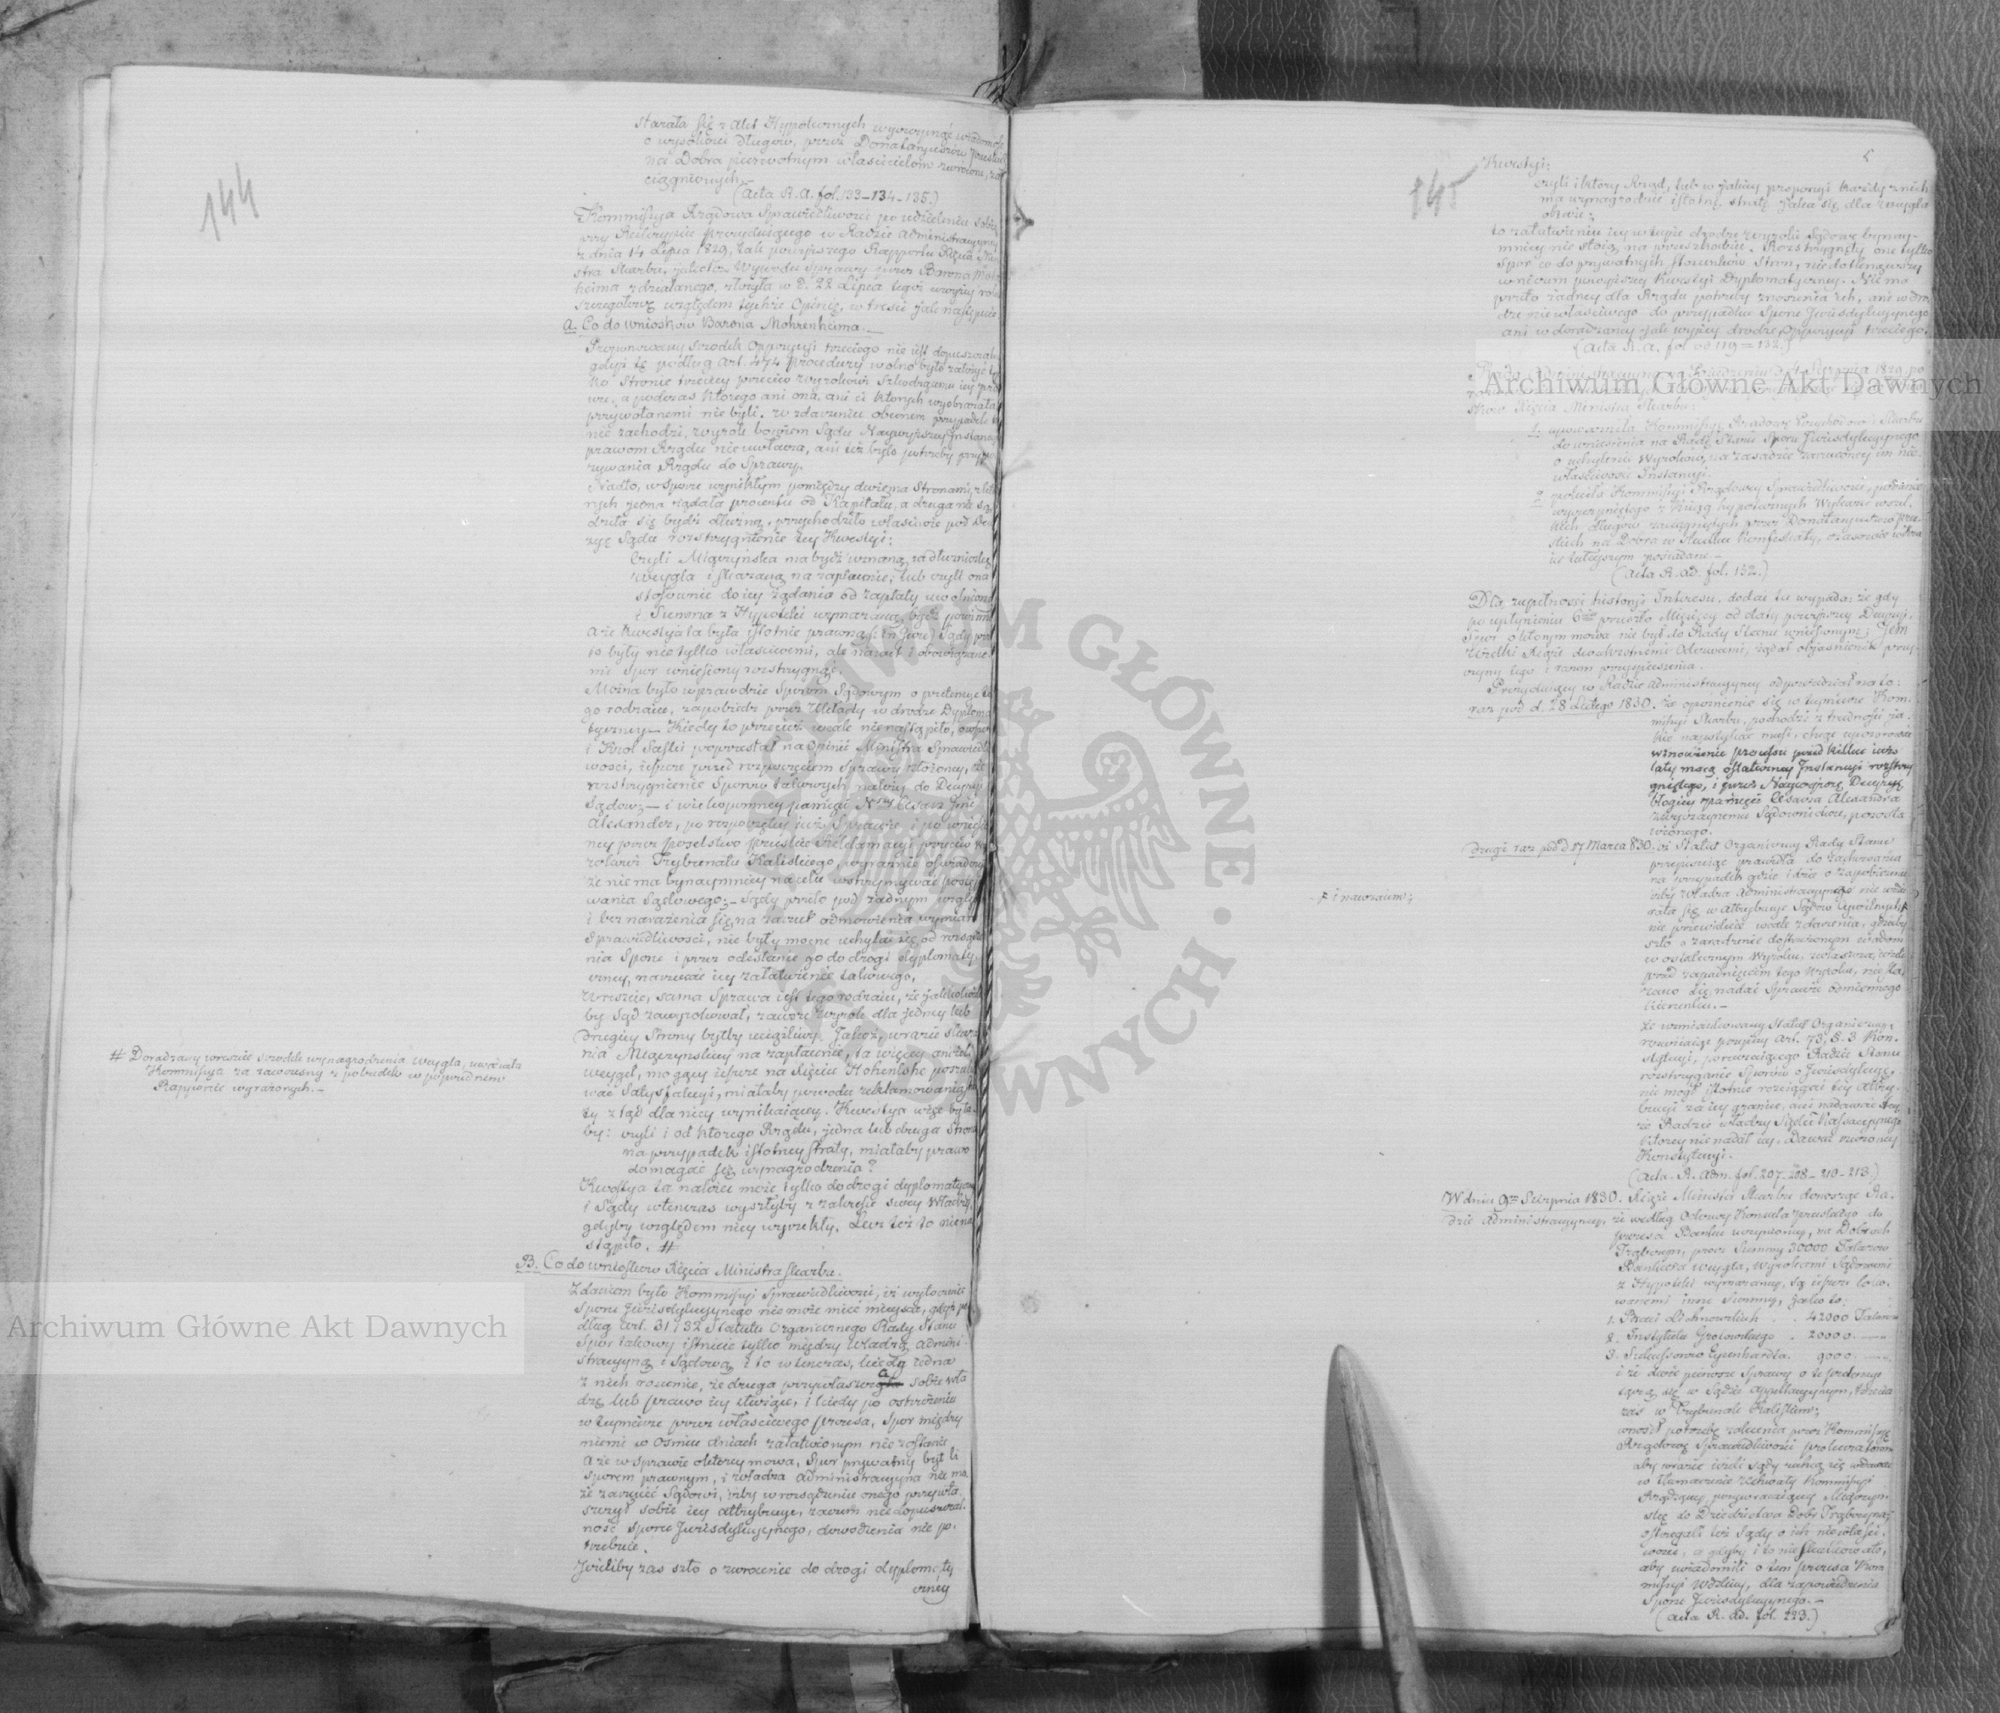 144
starała się z akt Hypotecznych wyczerpnąć wiadomość
o wysokości długów, przez Donataryuszów pruskich
na Dobra pierwotnym właścicielom zwrócone, za-
ciągnionych.—
(Acta R. A. fol. 133—134—135.)
Kommissya Rządowa Sprawiedliwości po udzieleniu sobie
przy Reskrypcie prezyduiącego w Radzie Administracyjney
z dnia 14 Lipca 1829, tak powyższego Rapportu Xięcia Mini-
stra Skarbu, jako też Wywodu Sprawy przez Barona Moh-
heima zdziałanego, złożyła w d. 28 Lipca tegoż roku
szczegółową względem tychże Opinię, w treści jak następuie
A. Co do wniosków Barona Mohrenheima.—
Proponowany środek Oppozycyi trzeciego nie iest dopuszczalny
gdyż tę podług Art. 474 Procedury wolno było założyć tyl-
ko Stronie trzeciey przeciw wyrokowi szkodzącemu iey pra-
wu, a podczas którego ani ona, ani ci których wyobrażała
przywołanemi nie byli. W zdarzeniu obecnem przypadek ten
nie zachodzi, wyrok bowiem Sądu Naywyższey Instancyi
prawom Rządu nie uwłacza, ani też było potrzeby przypo-
zywania Rządu do Sprawy.
Nadto, w sporze wynikłym pomiędzy dwiema Stronami, z któ-
rych jedna żądała procentu od Kapitału, a druga nie są-
dziła się bydź dłużną, przychodziło właściwie pod De-
cyzyę Sądu rozstrzygnienie tey Kwestyi:
Czyli Mączyńska ma bydź uznaną za dłużniczkę
Weygla i skazaną na zapłacenie, lub czyli ona
stosownie do iey żądania od zapłaty uwolnioną
i Summa z Hypoteki wymazaną bydź powinna
A że Kwestya ta była istotnie prawną, in Jure, Sądy prze-
to były nie tylko właściwemi, ale nawet i obowiązane-
mi spór wniesiony rozstrzygnąć.
Można było wprawdzie sporom Sądowym o pretensye te-
go rodzaiu, zapobiedz przez Układy w drodze Dyploma-
tyczney— Kiedy to przecież wcale nie nastąpiło, owszem
i Król Saski poprzestał na opinii Ministra Sprawiedli-
wości, ieszcze przed rozpoczęciem Sprawy złożoney, że
rozstrzygnienie Sporów takowych należy do Decyzyi
Sądów;— i wiekopomney pamięci N.szy Cesarz Jmć
Alexander, po rozpoczętey iuż Sprawie, i po wniesio-
ney przez poselstwo pruskie Reklamacyi przeciw Wy-
rokowi Trybunału Kaliskiego, wyraźnie oświadczył
że nie ma bynaymniey na celu wstrzymywać postępo-
wania Sądowego;— Sądy przeto pod żadnym względem
i bez narażenia się na zarzut odmówienia wymiaru
Sprawiedliwości, nie były mocne uchylać się od rozsądze-
nia Sporu i przez odesłanie go do drogi dyplomaty-
czney, narzucać iey załatwienie takowego.
Wreszcie, sama Sprawa iest tego rodzaiu, że jakkolwiek-
by Sąd zawyrokował, zawsze wyrok dla jedney lub
drugiey Strony byłby uciążliwy. Jakoż, w razie skaza-
nia Mączyńskiey na zapłacenie, ta więcey aniżeli
Weygel, mogący ieszcze na Xięciu Hohenlohe poszuki-
wać satysfakcyi, miałaby powodu reklamowania stra-
ty ztąd dla niey wynikaiącey. Kwestya więc była-
by: czyli i od którego Rządu, jedna lub druga Strona
na przypadek istotney straty, miałaby prawo
domagać się wynagrodzenia?
Kwestya ta należeć może tylko do drogi dyplomatyczney
i Sądy wtenczas wyszłyby z zakresu swey Władzy,
gdyby względem niey wyrzekły. Lecz też to nie na-
stąpiło. #
# Doradzany wreszcie środek wynagrodzenia Weygla, uważała
Kommissya za zawczesny z pobudek w poprzednim
Rapporcie wyrażonych.—
B. Co do wniosków Xięcia Ministra Skarbu.
Zdaniem było Kommissyi Sprawiedliwości, iż wytoczenie
Sporu Jurisdykcyjnego nie może mieć mieysca, gdyż po-
dług Art. 31 i 32 Statutu Organicznego Rady Stanu
Spór takowy istnieie tylko między Władzą Admini-
stracyjną i Sądową i to wtenczas, kiedy iedna
z nich mniema, że druga przywłaszcza sobie wła-
dzę lub prawo iey służące, i kiedy po ostrzeżeniu
w tey mierze przez właściwego prezesa, Spór między
niemi w ośmiu dniach załatwionym nie zostanie
A że w sprawie o którey mowa, Spór prywatny był li
sporem prawnym, i władza administracyjna nie ma
że zarzucić Sądowi, żeby w rozsądzeniu onego przywła-
szczył sobie iey attrybucye, zaczem niedopuszczal-
ność Sporu Jurisdykcyjnego, dowodzenia nie po-
trzebuie.
Jeżeliby zaś szło o zwrócenie do drogi dyplomaty-
czney
145
5
Kwestyi:
czyli i który Rząd, lub w jakiey proporcyi każdy z nich
ma wynagrodzić istotną stratę jaka się dla Weygla
okaże;
to załatwieniu iey w teyże drodze wyroki Sądowe bynay-
mniey nie stoią na przeszkodzie. Rozstrzygnęły one tylko
Spór co do prywatnych stosunków Stron, nie dotknąwszy
w niczem powyższey Kwestyi Dyplomatyczney. Nie ma
przeto żadney dla Rządu potrzeby znoszenia ich, ani w dro-
dze niewłaściwego do przypadku Sporu Jurisdykcyjnego
ani w doradzaney jak wyżey drodze Oppozycyi trzeciego.
(Acta R. A. fol. od 119=132.)
Rada Administracyjna na Posiedzeniu d. 4 Sierpnia 1829 po
sków Xięcia Ministra Skarbu:
1. upoważniła Kommissyę Rządową Przychodów i Skarbu
do wniesienia na Radę Stanu Sporu Jurisdykcyjnego
o uchylenie Wyroków, na zasadzie zarzuconey im nie-
właściwości Instancyi.
2. poleciła Kommissyi Rządowey Sprawiedliwości, podanie
wyczerpniętego z Xiąg hypotecznych Wykazu wszel-
kich długów zaciągniętych przez Donataryuszów pru-
skich na Dobra w skutku Konfiskaty, czasowie w kra-
iu tuteyszym posiadane.—
(Acta R. Ad. fol. 132.)
Dla zupełności historyi Interesu, dodać tu wypada: że gdy
po upłynieniu 6ciu przeszło Miesięcy od daty powyższey Decyzyi,
Spór o którym mowa nie był do Rady Stanu wniesionym; Jen.
Wielki Xiąże dwukrotnemi Odezwami, żądał objaśnienia przy-
czyny tego i razem przyspieszenia.
Prezyduiący w Radzie Administracyjney odpowiadał na to:
raz pod d. 28 Lutego 1830. że opóźnienie się w tey mierze Kom-
missyi Skarbu, pochodzi z trudności ja-
kie napotykać musi, chcąc uporczywie
wznowienie procesu przed kilku iuż
laty mocą ostateczney Instancyi rozstrzy-
gniętego, i przez Naywyższą Decyzyę
błogiey pamięci Cesarza Alexandra
zwyczaynemu Sądownictwu, pozosta-
wionego.
Drugi raz pod d 17 Marca 830. iż Statut Organiczny Rady Stanu
przepisuiąc prawidła do zachowania
na wypadek gdzie idzie o zapobieżenie
iżby Władza Administracyjna nie wdzie-
rała się w Attrybucye Sądów Cywilnych #
nie przewidział wcale zdarzenia, gdzieby
szło o zaradzenie dostrzeżonym wadom
w ostatecznym Wyroku, zwłaszcza, kiedy
przed zapadnięciem tego Wyroku, nie sta-
rano się nadać Sprawie odmiennego
kierunku.—
# i nawzaiem;
Że wzmiankowany Statut Organiczny,
rozwiiaiąc przepisy Art. 73, §. 3 Kon-
stytucyi, poruczaiącego Radzie Stanu
rozstrzyganie Sporów o Jurisdykcyę,
nie mógł istotnie rozciągać tey Attry-
bucyi za iey granice, ani nadawać tey-
że Radzie władzy Sądu Kassacyjnego
którey nie nadał iey Dawca rzeczoney
Konstytucyi.
(Acta. R. Adm. fol. 207—208—210—213.)
W dniu 9m Sierpnia 1830. Xiąże Minister Skarbu donosząc Ra-
dzie Administracyjney, że według Odezwy Konsula pruskiego do
prezesa Banku uczynioney, na Dobrach
Trąbczyn, prócz Summy 30000 Talarów
Bankiera Weygla, Wyrokami Sądowemi
z Hypoteki wymazaney, są ieszcze loko-
wanemi inne Summy, jako to:
1. Braci Lichnowskich . . 42000 Talarów
2. Instytutu Grotowskiego . 20000. ——
3. Sukcessorów Eysenhardta. 9000. ——
i że dwie pierwsze Sprawy o te pretensye
toczą się w Sądzie Appellacyjnym, trzecia
zaś w Trybunale Kaliskim;
wnosił potrzebę zalecenia przez Kommissyę
Rządową Sprawiedliwości prokuratorom
aby w razie ieżeli Sądy zechcą się wdawać
w tłumaczenie Uchwały Kommissyi
Rządzącey przywracaiącey Mączyń-
skę do Dziedzictwa Dóbr Trąbczyna,
ostrzegali też Sądy o ich niewłaści-
wości, a gdyby i to nie skutkowało,
aby uwiadomili o tem prezesa Kom-
missyi Wdzkiey, dla zapowiedzenia
Sporu Jurisdykcyjnego.—
(Acta R. Ad. fol. 223.)
Archiwum Główne Akt Dawnych
Archiwum Główne Akt Dawnych
ARCHIWUM GŁÓWNE AKT DAWNYCH